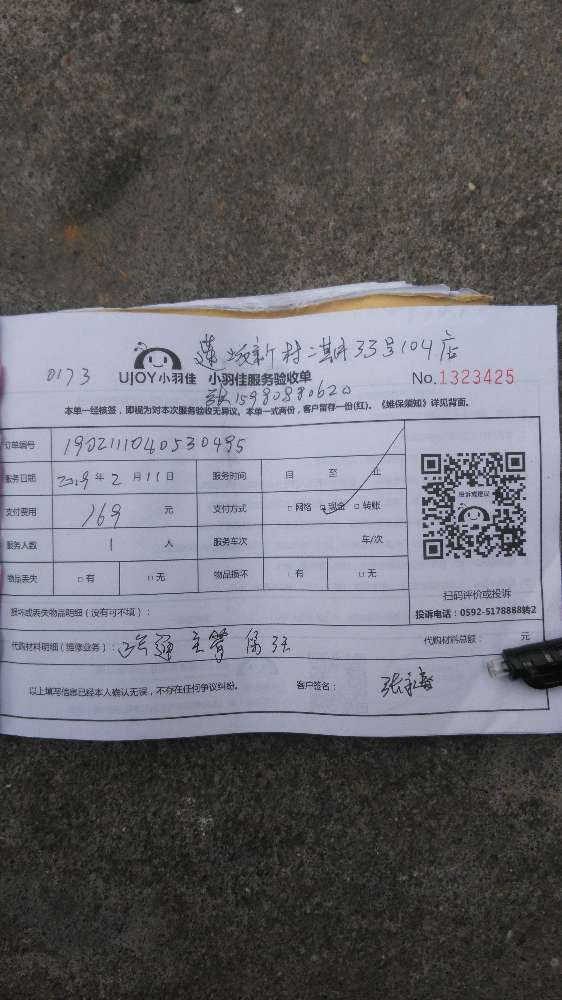 莲坂新村二期33号104店
0173 UJOY小羽佳 小羽佳服务验收单 No.1323425
15980880620
本单一经核签，即视为对本次服务验收无异议。本单一式两份，客户留存一份(红)。《维保须知》详见背面。
订单编号 190211104053049 5
服务日期 2019年2月11日 服务时间 自 至 止
支付费用 169 元 支付方式 □网络 □现金 □转账
投诉或建议
服务人数 1 人 服务车次 车/次
物品丢失 □有 □无 物品损坏 □有 □无
扫码评价或投诉
损坏或丢失物品明细（没有可不填）：
投诉电话：0592-5178888转2
代购材料明细（维修业务）： 疏通主管 代购材料总额： 元
以上填写信息已经本人确认无误，不存在任何争议纠纷。 客户签名：